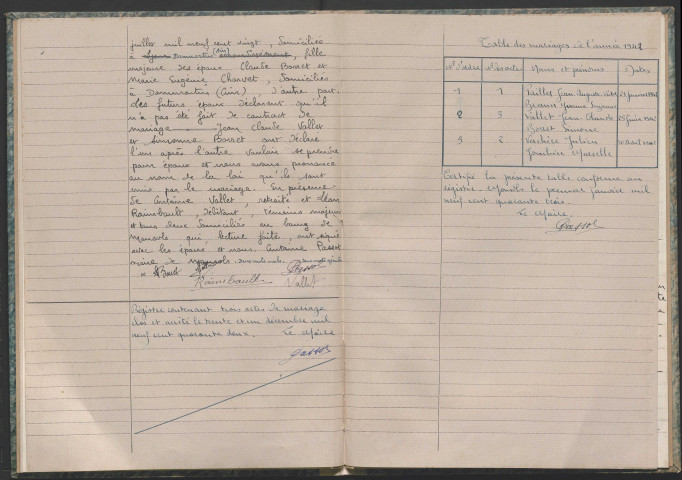 juillet mil neuf cent vingt, domiciliée
à Dommartin (Ain), fille
majeure des époux Claude Borset et
Marie Eugénie Charvet, domiciliés
à Dommartin (Ain) d'autre part.
Les futurs époux déclarent qu'il
n'a pas été fait de contrat de
mariage. Jean Claude Vallet
et Simonne Borset ont déclaré
l'un après l'autre vouloir se prendre
pour époux et nous avons prononcé
au nom de la loi qu'ils sont
unis par le mariage. En présence
de Antoine Vallet, retraité et
Raimbault, débitant, témoins majeurs
et tous deux domiciliés au bourg de
Monsols qui, lecture faite, ont signé
avec les époux et nous. Antoine Passot
maire de Monsols.
Raimbault Vallet
Registre contenant trois actes de mariage
clos et arrêté le trente et un décembre mil
neuf cent quarante deux. Le Maire
Passot
Table des mariages de l'année 1942
N° d'ordre N° de l'acte Noms et prénoms Dates
1 1 Vaillet Jean
2 3 Vallet Jean-Claude
Borset Simonne
3 2 Julien
Certifié la présente table conforme au
registre le premier janvier mil
neuf cent quarante trois.
Le Maire.
Passot